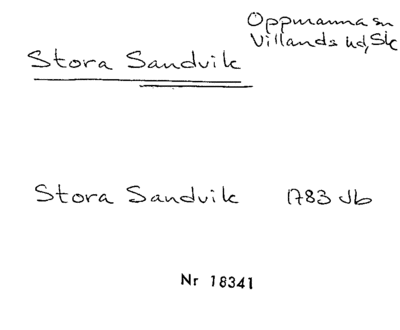 Oppmanna sn
Villands hd, Sk
Stora Sandvik
Stora Sandvik 1783 Jb
Nr 18341